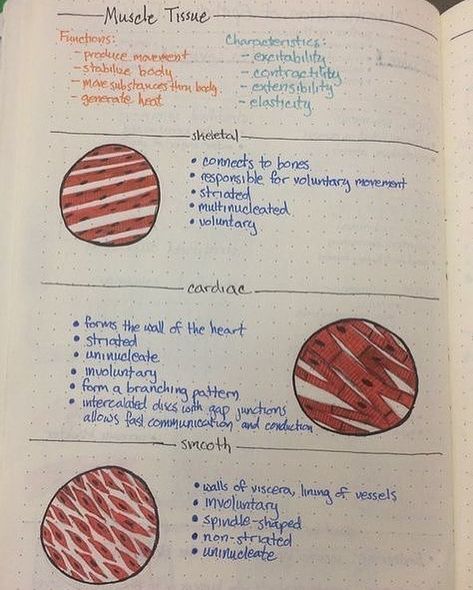 Muscle Tissue
Functions:
- produce movement
- stabilize body
- move substances thru body
- generate heat
Characteristics:
- excitability
- contractility
- extensibility
- elasticity
skeletal
• connects to bones
• responsible for voluntary movement
• striated
• multinucleated
• voluntary
cardiac
• forms the wall of the heart
• striated
• uninucleate
• involuntary
• form a branching pattern
• intercalated discs with gap junctions
allows fast communication and conduction
smooth
• walls of viscera, lining of vessels
• involuntary
• spindle-shaped
• non-striated
• uninucleate